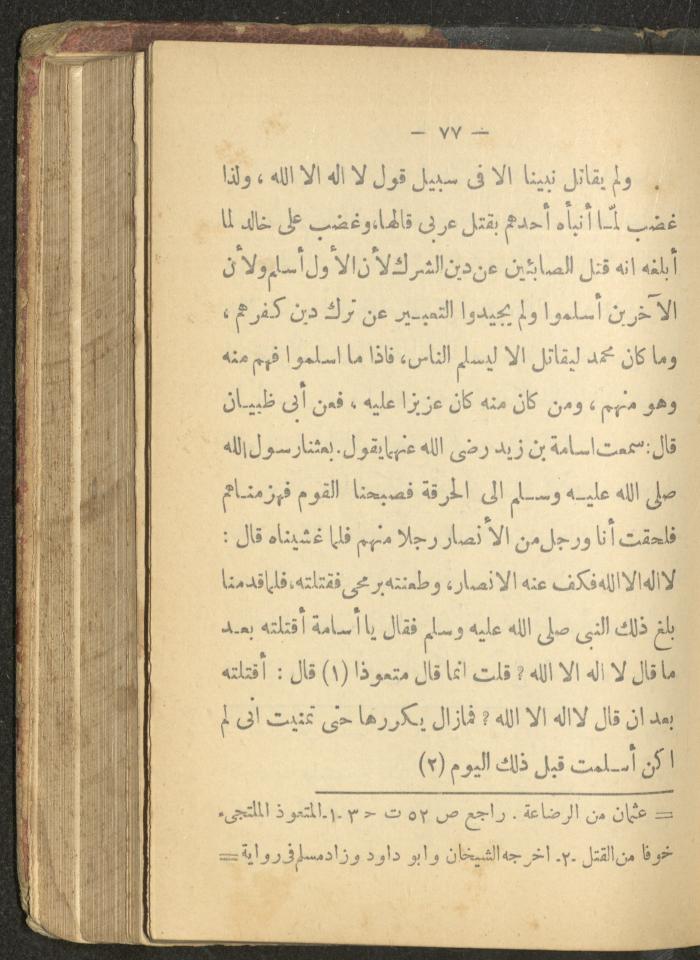 — ٧٧ —
ولم يقاتل نبينا الا فى سبيل قول لا اله الا الله ، ولذا
غضب لمّا أنبأه أحدهم بقتل عربى قالها، وغضب على خالد لما
أبلغه انه قتل الصابئين عن دين الشرك لأن الأول أسلم ولأن
الآخرين أسلموا ولم يجيدوا التعبير عن ترك دين كفرهم ،
وما كان محمد ليقاتل الا ليسلم الناس، فاذا ما اسلموا فهم منه
وهو منهم ، ومن كان منه كان عزيزا عليه ، فعن أبى ظبيان
قال: سمعت اسامة بن زيد رضى الله عنهما يقول. بعثنا رسول الله
صلى الله عليه وسلم الى الحرقة فصبحنا القوم فهزمناهم
فلحقت أنا ورجل من الأنصار رجلا منهم فلما غشيناه قال :
لا اله الا الله فكف عنه الانصار، وطعنته برمحى فقتلته، فلما قدمنا
بلغ ذلك النبى صلى الله عليه وسلم فقال يا أسامة أقتلته بعد
ما قال لا اله الا الله ? قلت انما قال متعوذا (١) قال : أقتلته
بعد ان قال لا اله الا الله ? فمازال يكررها حتى تمنيت انى لم
اكن أسلمت قبل ذلك اليوم (٢)
= عثمان من الرضاعة . راجع ص ٥٢ ت ح ٣ ـ١ـ المتعوذ الملتجىء
خوفا من القتل ـ٢ـ اخرجه الشيخان وابو داود وزاد مسلم فى رواية =